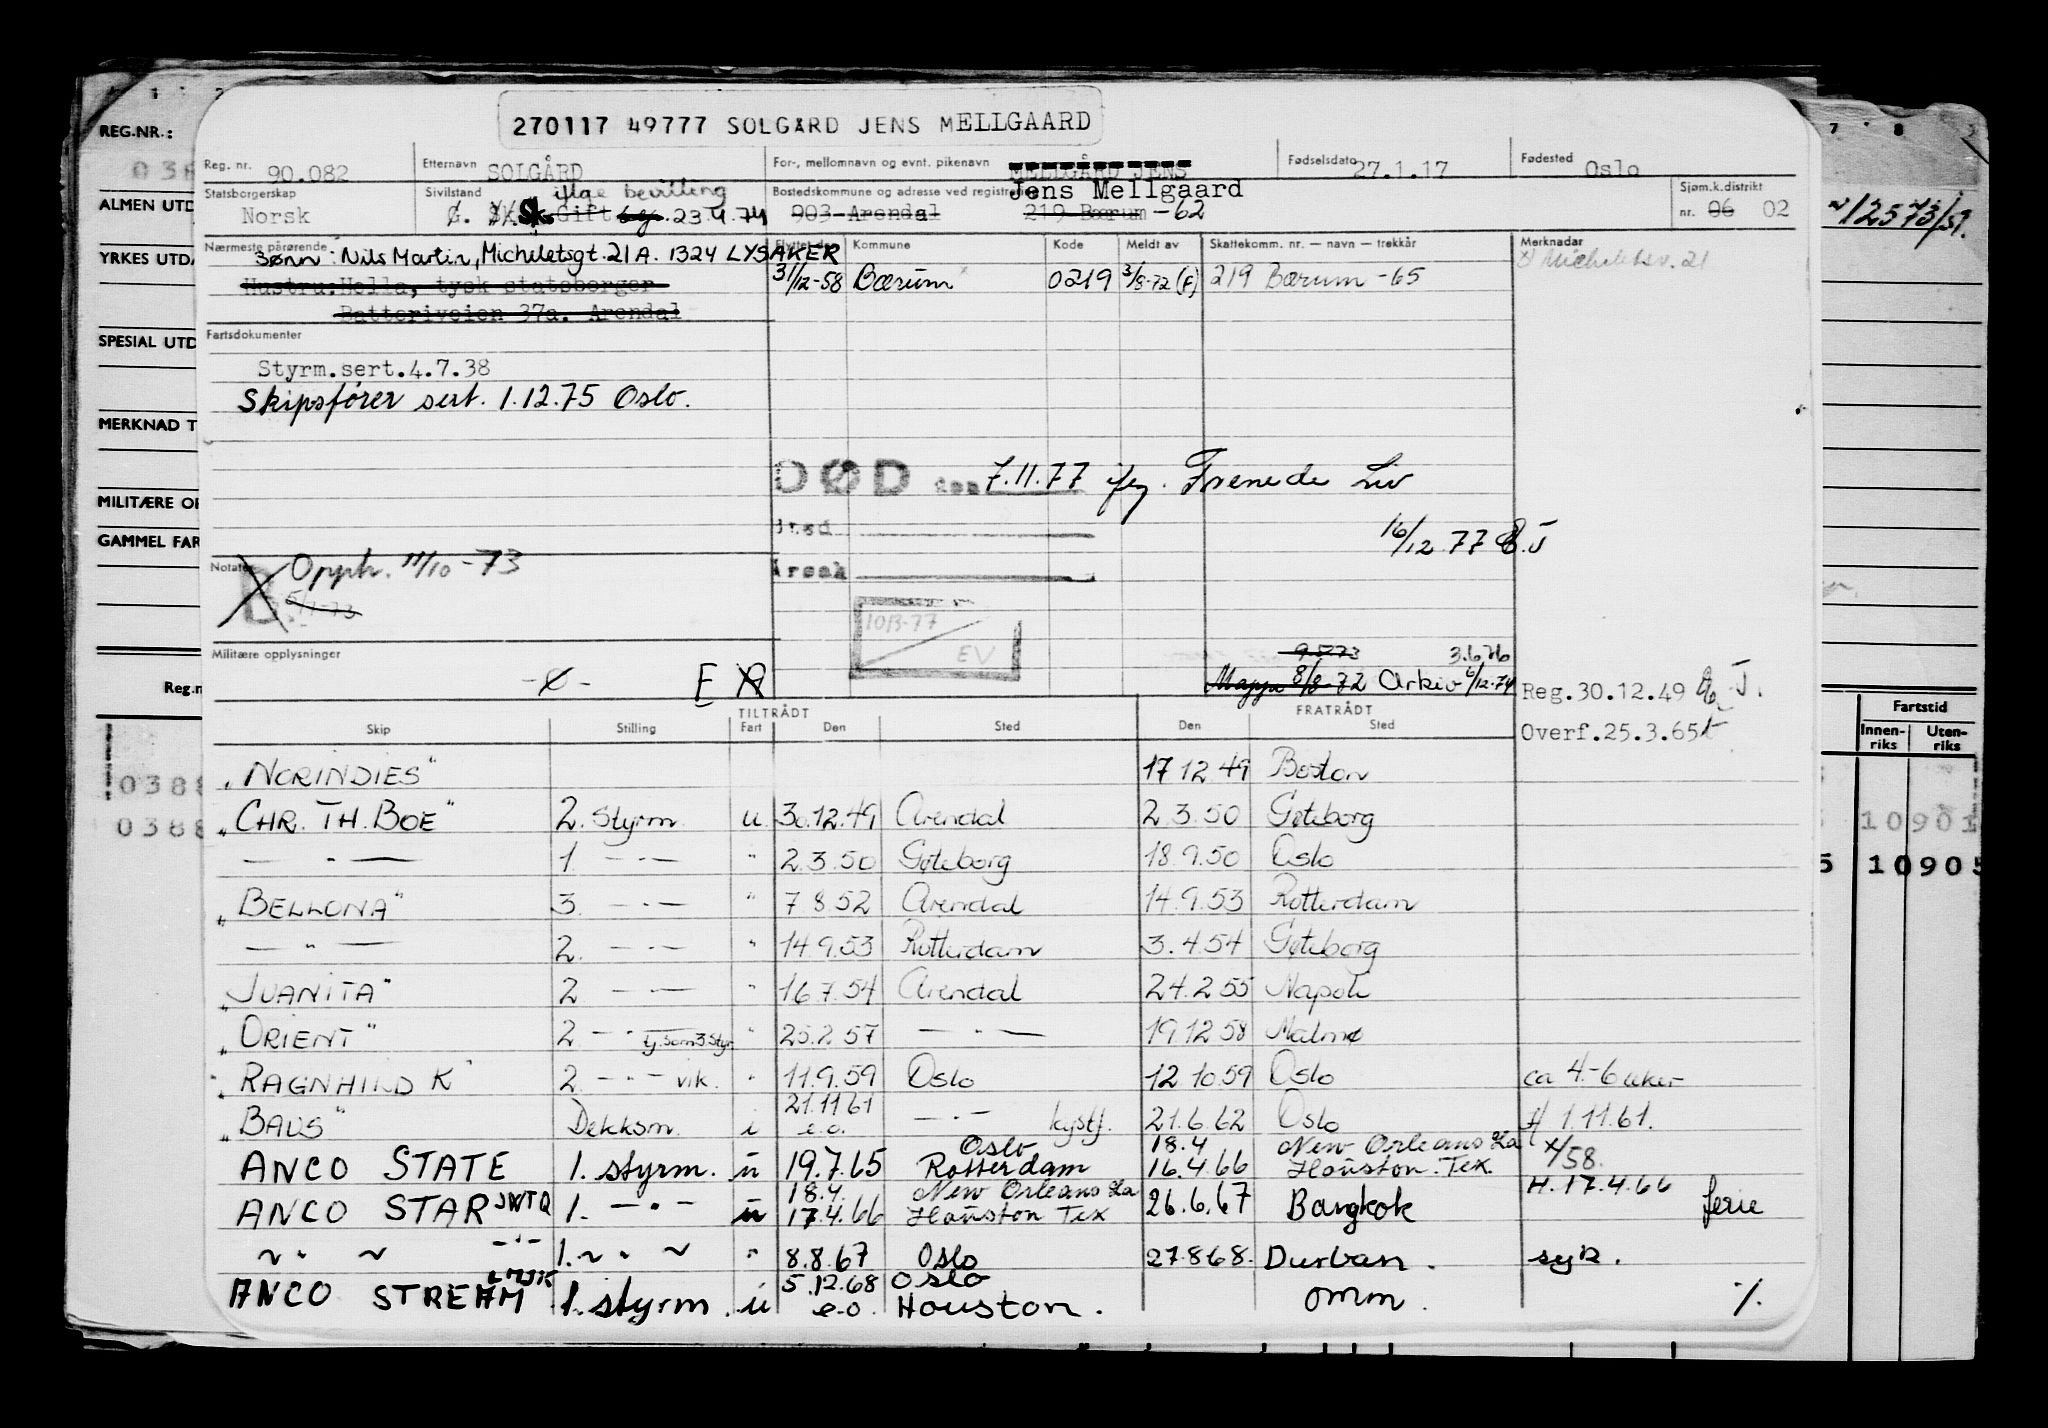 270117 49777 SOLGÅRD JENS MELLGAARD
REG.NR.:
ALMEN UTD
YRKES UTDA
SPESIAL UTD
MERKNAD T
MILITÆRE OP
GAMMEL FAR
Reg.n
0388
0388
Reg. nr. 90.082 Etternavn SOLGÅRD For-, mellomnavn og evnt. pikenavn MELLGÅRD JENS Fødselsdato 27.1.17 Fødested Oslo
Jens Mellgaard
Statsborgerskap Norsk Sivilstand iflge bevilling Bostedskommune og adresse ved registrering Sjøm.k.distrikt
Gift 23.4.74 903 Arendal 219 Bærum -62 nr. 06 02
Nærmeste pårørende Flyttet den Kommune Kode Meldt av Skattekomm. nr. — navn — trekkår Merknadar
Sønn: Nils Martin, Micheletsgt. 21A. 1324 LYSAKER
Micheletsv. 21
Hustru: Hella, tysk statsborger 31/12-58 Bærum 0219 3/8-72 (F) 219 Bærum -65
Batteriveien 37a. Arendal
Fartsdokumenter
Styrm.sert.4.7.38
Skipsfører sert. 1.12.75 Oslo.
DØD den 7.11.77 Frænede Liv
Sted
16/12 77
Årsak
Notater Opph. 11/10-73
5/7-73
10B-77
EV
Militære opplysninger
E
9.5.73 3.6.76
Mappe 8/8-72 Arkiv 6/12-74
Reg.30.12.49 J.
Overf.25.3.65
Skip Stilling TILTRÅDT Fart Den Sted FRATRÅDT Den Sted
"NORINDIES" 17 12 49 Boston
"CHR. TH. BOE" 2. Styrm. u 30.12.49 Arendal 2.3.50 Gøteborg
— " — 1 — " — " 2.3.50 Gøteborg 18.9.50 Oslo
"BELLONA" 3. — " — " 7 8 52 Arendal 14.9.53 Rotterdam
— " — 2. — " — " 14 9.53 Rotterdam 3.4.54 Gøteborg
"JUANITA" 2 — " — " 16.7.54 Arendal 24.2 55 Napoli
"ORIENT" 2 — " — tj. som 3. Styr. " 25.2 57 — " — 19 12 58 Malmø
"RAGNHILD K" 2. — " — vik. " 11.9.59 Oslo 12 10.59 Oslo ca 4.-6 uker
"BAUS" Dekksm. i 21.11 61 e.o. — " — kystf. 21.6.62 Oslo 1.11.61.
ANCO STATE 1. styrm. u 19.7.65 Oslo Rotterdam 18.4 16.4.66 New Orleans La Houston. Tex. x/58.
ANCO STAR JWTQ 1. — " — u 18.4. 17.4.66 New Orleans La Houston Tex 26.6.67 Bangkok H. 17.4.66 ferie
~ " ~ — " — 1. ~ " ~ " 8.8.67 Oslo 27.8 68. Durban. syk.
ANCO STREAM LMJK 1. styrm. u 5.12.68 e.o. Oslo Houston. omm. ./.
12573/59.
Fartstid
Innen-riks Uten-riks
10901
5 10905